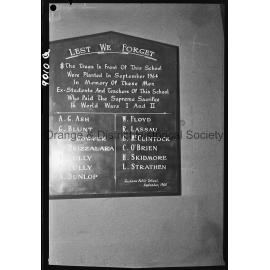 LEST WE FORGET
The Trees In Front Of This School
Were Planted in September 1964
In Memory Of Those Men
Ex-Students And Teachers Of This School
Who Paid The Supreme Sacrifice
In World Wars I And II
A. G. ASH
G. BLUNT
BRIZZALARA
CULLY
CULLY
A. DUNLOP
W. FLOYD
R. LASSAU
MCCLINTOCK
C. O'BRIEN
H. SKIDMORE
L. STRATHEN
Public School,
September, 1964
Orange & District Historical Society